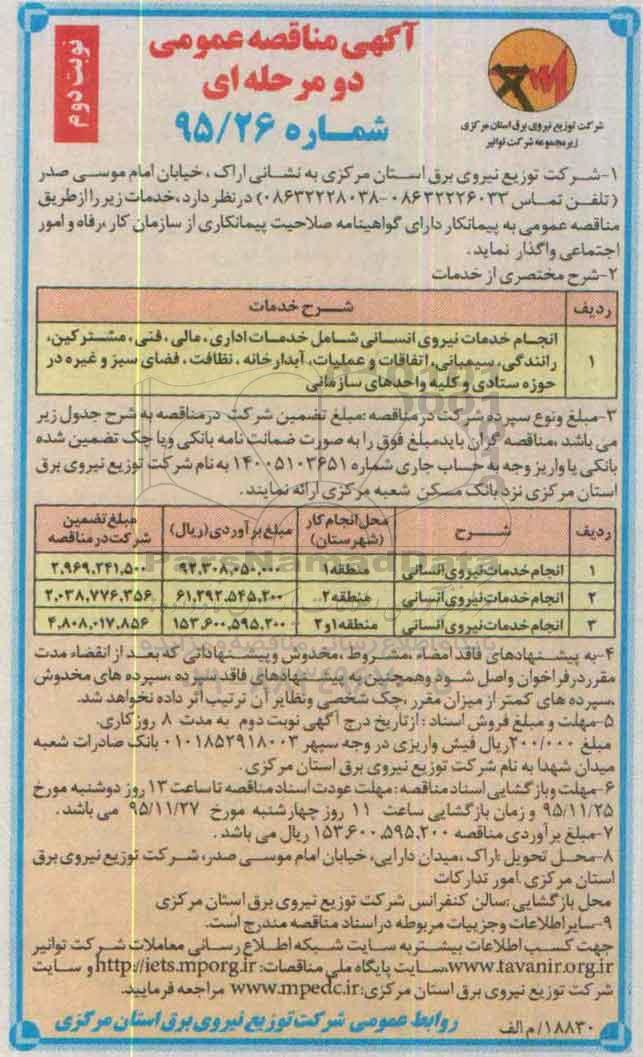 آگهی مناقصه عمومی
دو مرحله ای
شماره ۹۵/۲۶
نوبت دوم
شرکت توزیع نیروی برق استان مرکزی
زیرمجموعه شرکت توانیر
۱-شرکت توزیع نیروی برق استان مرکزی به نشانی اراک ، خیابان امام موسی صدر
( تلفن تماس ۰۸۶۳۲۲۲۶۰۳۳-۰۸۶۳۲۲۲۸۰۳۸) در نظر دارد، خدمات زیر را از طریق
مناقصه عمومی به پیمانکار دارای گواهینامه صلاحیت پیمانکاری از سازمان کار ،رفاه و امور
اجتماعی واگذار نماید.
۲-شرح مختصری از خدمات
ردیف شرح خدمات
۱ انجام خدمات نیروی انسانی شامل خدمات اداری ، مالی ، فنی ، مشترکین،
رانندگی، سیمبانی، اتفاقات و عملیات، آبدارخانه ، نظافت ، فضای سبز و غیره در
حوزه ستادی و کلیه واحدهای سازمانی
۳-مبلغ ونوع سپرده شرکت در مناقصه :مبلغ تضمین شرکت درمناقصه به شرح جدول زیر
می باشد ،مناقصه گران بایدمبلغ فوق را به صورت ضمانت نامه بانکی ویا چک تضمین شده
بانکی یا واریز وجه به حساب جاری شماره ۱۴۰۰۵۱۰۳۶۵۱ به نام شرکت توزیع نیروی برق
استان مرکزی نزد بانک مسکن شعبه مرکزی ارائه نمایند.
ردیف شرح محل انجام کار (شهرستان) مبلغ برآوردی(ریال) مبلغ تضمین شرکت در مناقصه
۱ انجام خدمات نیروی انسانی منطقه۱ ۹۲,۳۰۸,۰۵۰,۰۰۰ ۲,۹۶۹,۲۴۱,۵۰۰
۲ انجام خدمات نیروی انسانی منطقه۲ ۶۱,۲۹۲,۵۴۵,۲۰۰ ۲,۰۳۸,۷۷۶,۳۵۶
۳ انجام خدمات نیروی انسانی منطقه۱و۲ ۱۵۳,۶۰۰,۵۹۵,۲۰۰ ۴,۸۰۸,۰۱۷,۸۵۶
۴-به پیشنهادهای فاقد امضاء ،مشروط ،مخدوش و پیشنهاداتی که بعد از انقضاء مدت
مقرر در فراخوان واصل شود وهمچنین به پیشنهادهای فاقد سپرده ،سپرده های مخدوش
،سپرده های کمتر از میزان مقرر ،چک شخصی ونظایر آن ترتیب اثر داده نخواهد شد.
۵-مهلت و مبلغ فروش اسناد : از تاریخ درج آگهی نوبت دوم به مدت ۸ روز کاری.
مبلغ ۲۰۰/۰۰۰ریال فیش واریزی در وجه سپهر ۰۱۰۱۸۵۲۹۱۸۰۰۳ بانک صادرات شعبه
میدان شهدا به نام شرکت توزیع نیروی برق استان مرکزی.
۶-مهلت و بازگشایی اسناد مناقصه : مهلت عودت اسناد مناقصه تا ساعت ۱۳ روز دوشنبه مورخ
۹۵/۱۱/۲۵ و زمان بازگشایی ساعت ۱۱ روز چهارشنبه مورخ ۹۵/۱۱/۲۷ می باشد.
۷-مبلغ برآوردی مناقصه ۱۵۳,۶۰۰,۵۹۵,۲۰۰ ریال می باشد .
۸-محل تحویل :اراک ،میدان دارایی، خیابان امام موسی صدر، شرکت توزیع نیروی برق
استان مرکزی ،امور تدارکات
محل بازگشایی :سالن کنفرانس شرکت توزیع نیروی برق استان مرکزی
۹-سایر اطلاعات وجزییات مربوطه در اسناد مناقصه مندرج است.
جهت کسب اطلاعات بیشتر به سایت شبکه اطلاع رسانی معاملات شرکت توانیر
www.tavanir.org.ir،سایت پایگاه ملی مناقصات: http://iets.mporg.ir و سایت
شرکت توزیع نیروی برق استان مرکزی:www.mpedc.ir مراجعه فرمایید.
۱۸۸۳۰/م الف
روابط عمومی شرکت توزیع نیروی برق استان مرکزی
ParsNamadData